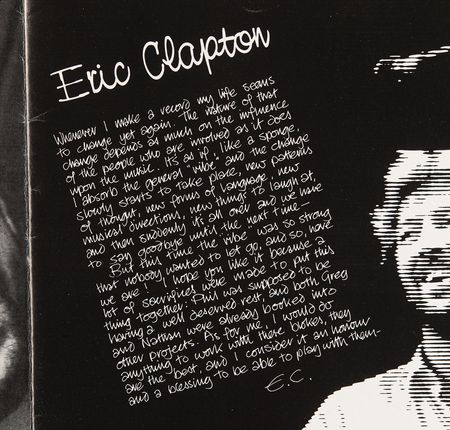 Eric Clapton
Whenever I make a record my life seems
to change yet again. The nature of that
change depends as much on the influence
of the people who are involved as it does
upon the music. Its as if, like a sponge,
I absorb the general "vibe", and the change
slowly starts to take place, new patterns
of thought, new forms of language, new
musical directions, new things to laugh at,
and then suddenly it's all over and we have
to say goodbye until the next time—
But this time the "vibe" was so strong
that nobody wanted to let go, and so, here
we are! I hope you like it because a
lot of sacrifices were made to put this
thing together. Phil was supposed to be
having a well deserved rest, and both Greg
and Nathan were already booked into
other projects. As for me, I would do
anything to work with these blokes, they
are the best, and I consider it an honour
and a blessing to be able to play with them—
E.C.